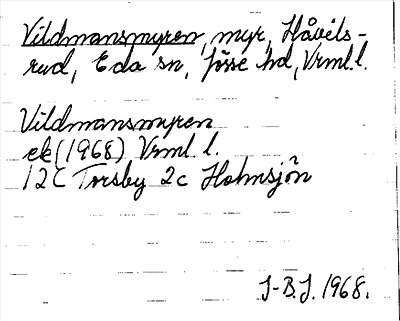 Vildmansmyren, myr, Håvils-
rud, Eda sn, Jösse hd, Vrml. l.
Vildmansmyren
ek (1968) Vrml l.
12C Torsby 2c Holmsjön
J-B.J. 1968.